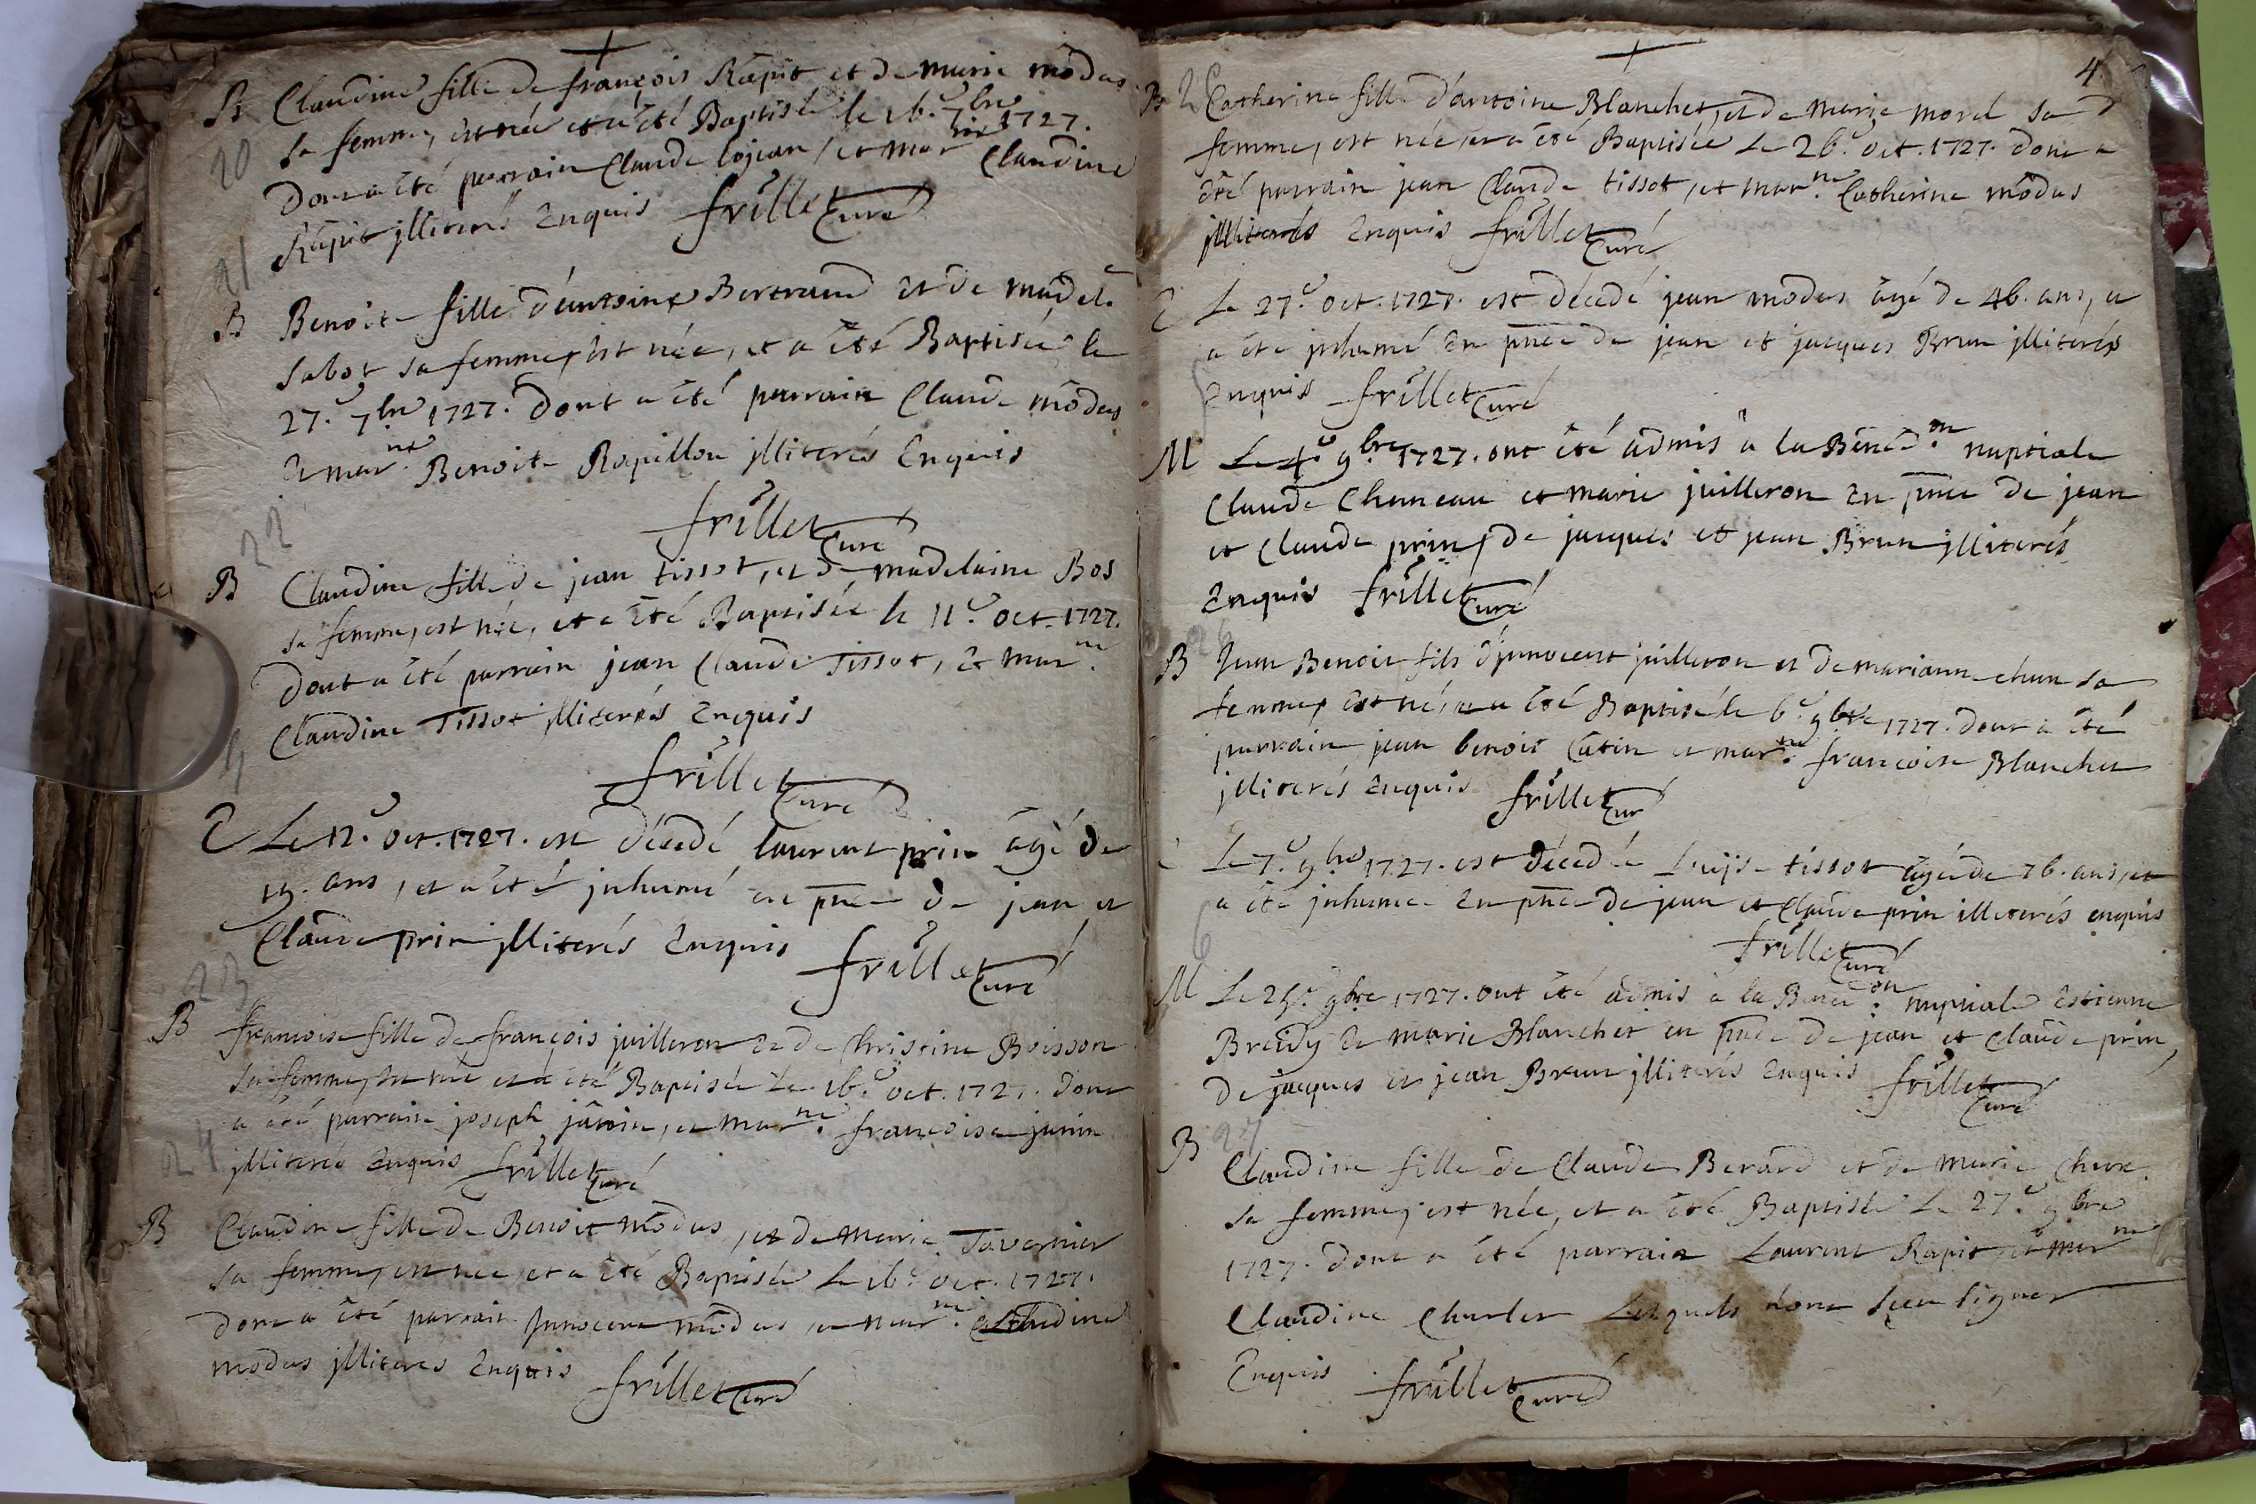 B Claudine fille de françois Rapit et de marie modas
20 sa femme, est née et a été Baptisée le 16.e 7bre 1727.
Dont a été parrain Claude lojean, et marne Claudine
Rapit jlliterés Enquis frillet Curé
21
B Benoite fille d'antoine Bertrand et de madel.
sabot sa femme, est née, et a été Baptisée le
27.e 7bre 1727. Dont a été parrain Claude modas
et mar.ne Benoite Rapillon jlliterés Enquis
frillet Curé
22
B Claudine fille de jean tissot, et de madelaine Bos
sa femme, est née, et a été Baptisée le 11.e oct. 1727.
Dont a été parrain jean Claude Tissot, et mar.ne
Claudine Tissot jlliterés Enquis
frillet Curé
Le 12.e oct. 1727. est décedé laurent prin âgé de
ans, et a été jnhumé en pnce de jean et
Claude prin jlliterés Enquis frillet Curé
23
B francoise fille de françois juilleron et de Christine Boisson
sa femme, est née et a été Baptisée Le 16.e oct. 1727. Dont
a été parrain joseph janin, et mar.ne francoise janin
24 jlliterés Enquis frillet Curé
B Claudine fille de Benoit modas, et de marie Tavernier
sa femme, est née et a été Baptisée Le 16.e oct. 1727.
dont a été parrain Innocent modas, et mar.ne Claudine
modas jlliterés Enquis frillet Curé
4
B Catherine fille d'antoine Blanchet, et de marie morel sa
femme, est née, et a été Baptisée Le 26.e oct. 1727. Dont a
été parrain jean Claude tissot, et mar.ne Catherine modas
jlliterés Enquis frillet Curé
Le 27.e oct. 1727. est décedé jean modas âgé de 46. ans, et
a été jnhumé En pnce de jean et jacques Brun jlliterés
Enquis frillet Curé
M Le 4.e 9bre 1727. ont été admis a la Bened.on nuptiale
Claude Chaneau et marie juilleron En pnce de jean
et Claude prin, de jacques et jean Brun jlliterés
Enquis frillet Curé
B Jean Benoit fils d'jnnocent juilleron et de mariann chun sa
femme, est né, et a été Baptisé le 6.e 9bre 1727. Dont a été
parrain jean benoit Catin et mar.ne francoise Blanchet
jlliterés Enquis frillet Curé
Le 7.e 9bre 1727. est décedée Louyse tissot âgée de 76. ans, et
a été jnhumée En pnce de jean et Claude prin illiterés enquis
6 frillet Curé
M Le 25.e 9bre 1727. ont été admis a la Bened.on nuptiale Estienne
Breidy et marie Blanchet en pnce de jean et Claude prin,
De jacques et jean Brun jlliterés Enquis frillet Curé
B 27
Claudine fille de Claude Berard et de marie
sa femme, est née, et a été Baptisée Le 27.e 9bre
1727. Dont a été parrain Laurent Rapit, et mar.ne
Claudine Charler Lesquels n'ont sceu signer
Enquis frillet Curé